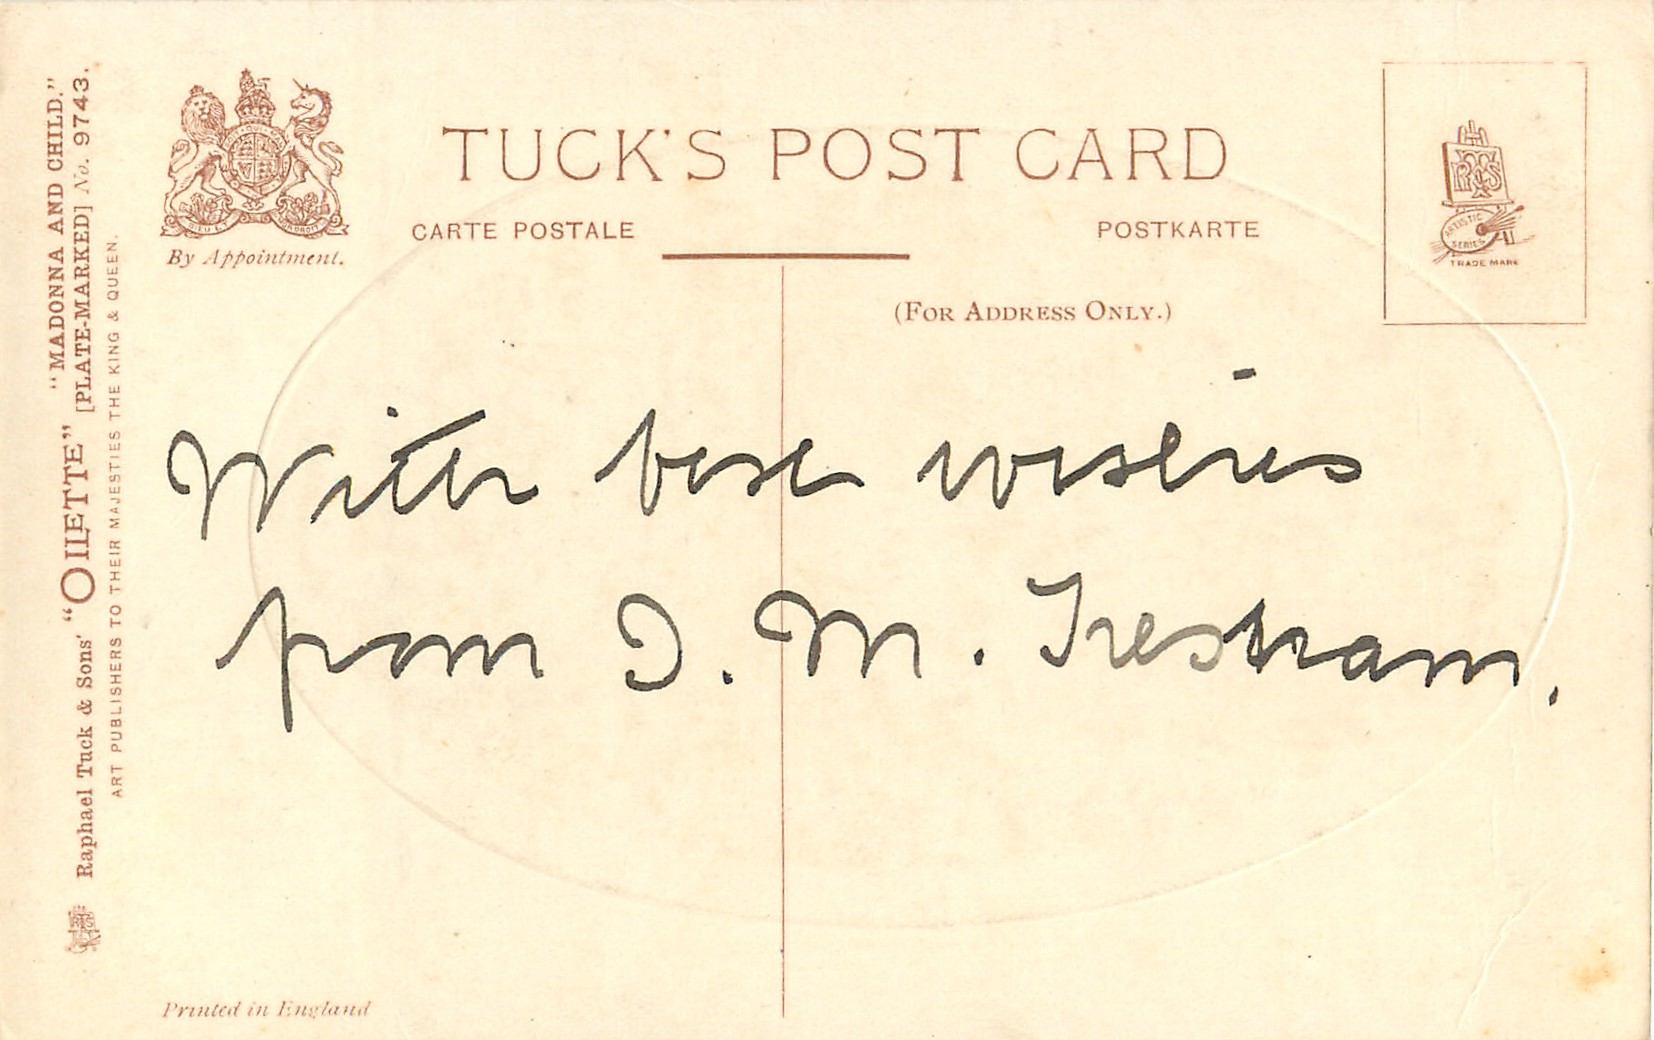 TUCK'S POST CARD
CARTE POSTALE
POSTKARTE
By Appointment.
(FOR ADDRESS ONLY.)
ARTISTIC
SERIES
TRADE MARK
"MADONNA AND CHILD."
Raphael Tuck & Sons' "OILETTE" [PLATE-MARKED] No. 9743.
ART PUBLISHERS TO THEIR MAJESTIES THE KING & QUEEN.
With best wishes
from I. M. Trestram.
Printed in England